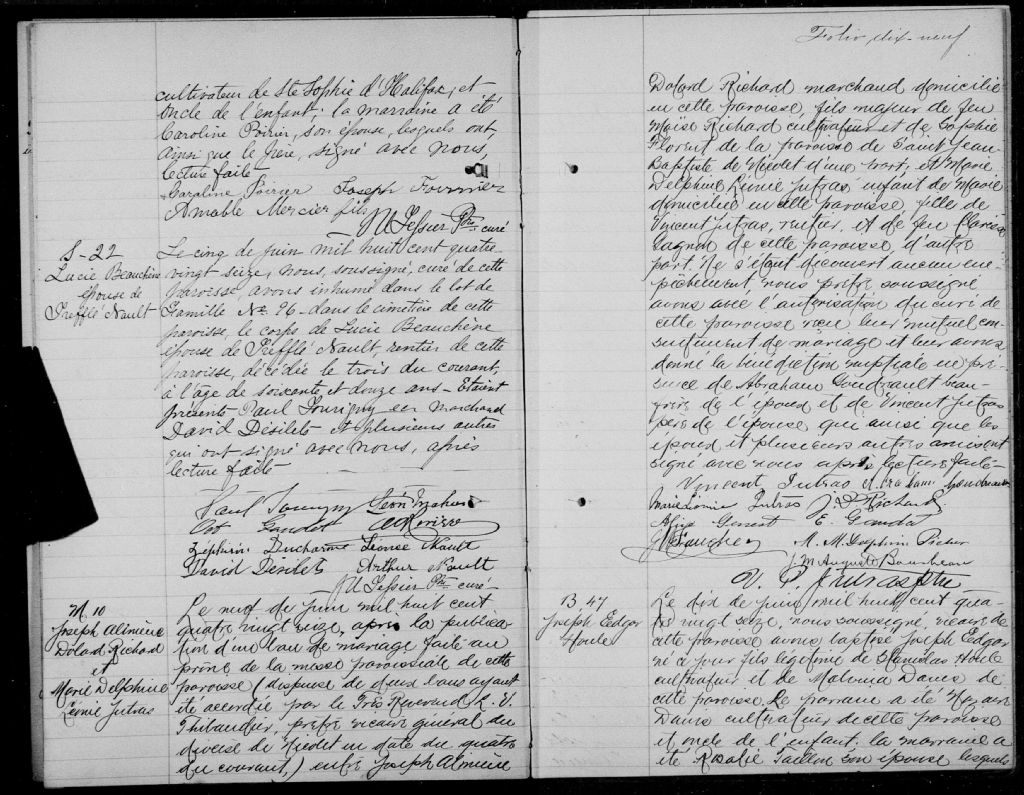 cultivateur de Ste Sophie d'Halifax, et
oncle de l'enfant; la marraine a été
Caroline Poirier, son épouse, lesquels ont,
ainsi que le père, signé avec nous,
lecture faite
Caroline Poirier Joseph Fournier
Amable Mercier fils
Tessier Ptre curé
S-22
Lucie Beauchène
épouse de
Trefflé Nault
Le cinq de juin mil huit cent quatre
vingt seize, nous, soussigné, curé de cette
paroisse, avons inhumé dans le lot de
famille No 96 dans le cimetière de cette
paroisse, le corps de Lucie Beauchène
épouse de Trefflé Nault, rentier de cette
paroisse, décédée le trois du courant,
à l'âge de soixante et douze ans - Etaient
présents Paul Tourigny marchand
David Désilets et plusieurs autres
qui ont signé avec nous, après
lecture faite
Paul Tourigny Léon
Gaudet
Zéphirin Ducharme Léonce Nault
David Désilets Arthur Nault
Tessier Ptre curé
M 10
Joseph Alimène
Dolard Richard
et
Marie Delphine
Léonie Jutras
Le neuf de juin mil huit cent
quatre vingt seize, après la publica-
tion d'un ban de mariage faite au
prône de la messe paroissiale de cette
paroisse (dispense de deux bans ayant
été accordée par le Très Révérend
Thibaudier, prêtre vicaire général du
diocèse de Nicolet en date du quatre
du courant,) entre Joseph Alimène
Folio dix-neuf
Dolard Richard marchand domicilié
en cette paroisse, fils majeur de feu
Moïse Richard cultivateur et de Sophie
Florent de la paroisse de Saint Jean-
Baptiste de Nicolet d'une part, et Marie
Delphine Léonie Jutras enfant de Marie
domiciliée en cette paroisse fille de
Vincent Jutras, rentier, et de feu Clarisse
Gagnon de cette paroisse d'autre
part. Ne s'étant découvert aucun em-
pêchement nous prêtre soussigné
avons avec l'autorisation du curé de
cette paroisse reçu leur mutuel con-
sentement de mariage et leur avons
donné la bénédiction nuptiale en pré-
sence de Abraham Goudrault beau-
frère de l'époux et de Vincent Jutras
père de l'épouse qui ainsi que les
époux et plusieurs autres amis ont
signé avec nous après lecture faite
Vincent Jutras Abraham Goudreault
Marie Léonie Jutras Richard
Genest E.
M. M. Delphine
J. M. Auguste
V. P. Jutras Ptre
B 47
Joseph Edgar
Houle
Le dix de juin mil huit cent qua-
tre vingt seize, nous soussigné, vicaire de
cette paroisse avons baptisé Joseph Edgar
né ce jour fils légitime de Stanislas Houle
cultivateur et de Malvina Danis de
cette paroisse. Le parrain a été Nazaire
Danis cultivateur de cette paroisse
et oncle de l'enfant. la marraine a
été Rosalie son épouse lesquels